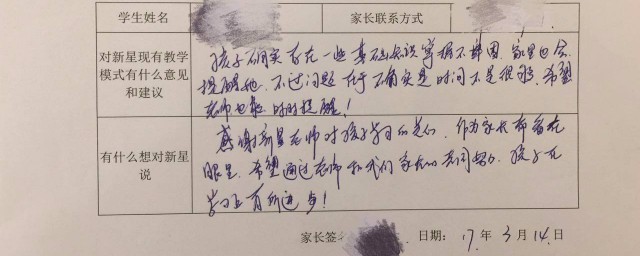 学生姓名 家长联系方式
对新星现有教学
模式有什么意见
和建议
孩子确实存在一些基础知识掌握不牢固,家里也会
提醒他,不过问题在于确实是时间不是很够,希望
老师也能时时提醒!
有什么想对新星
说
感谢新星老师对孩子学习的关心,作为家长都看在
眼里,希望通过老师和我们家长的共同努力,孩子在
学习上有所进步!
家长签 日期: 17 年 3 月 14 日